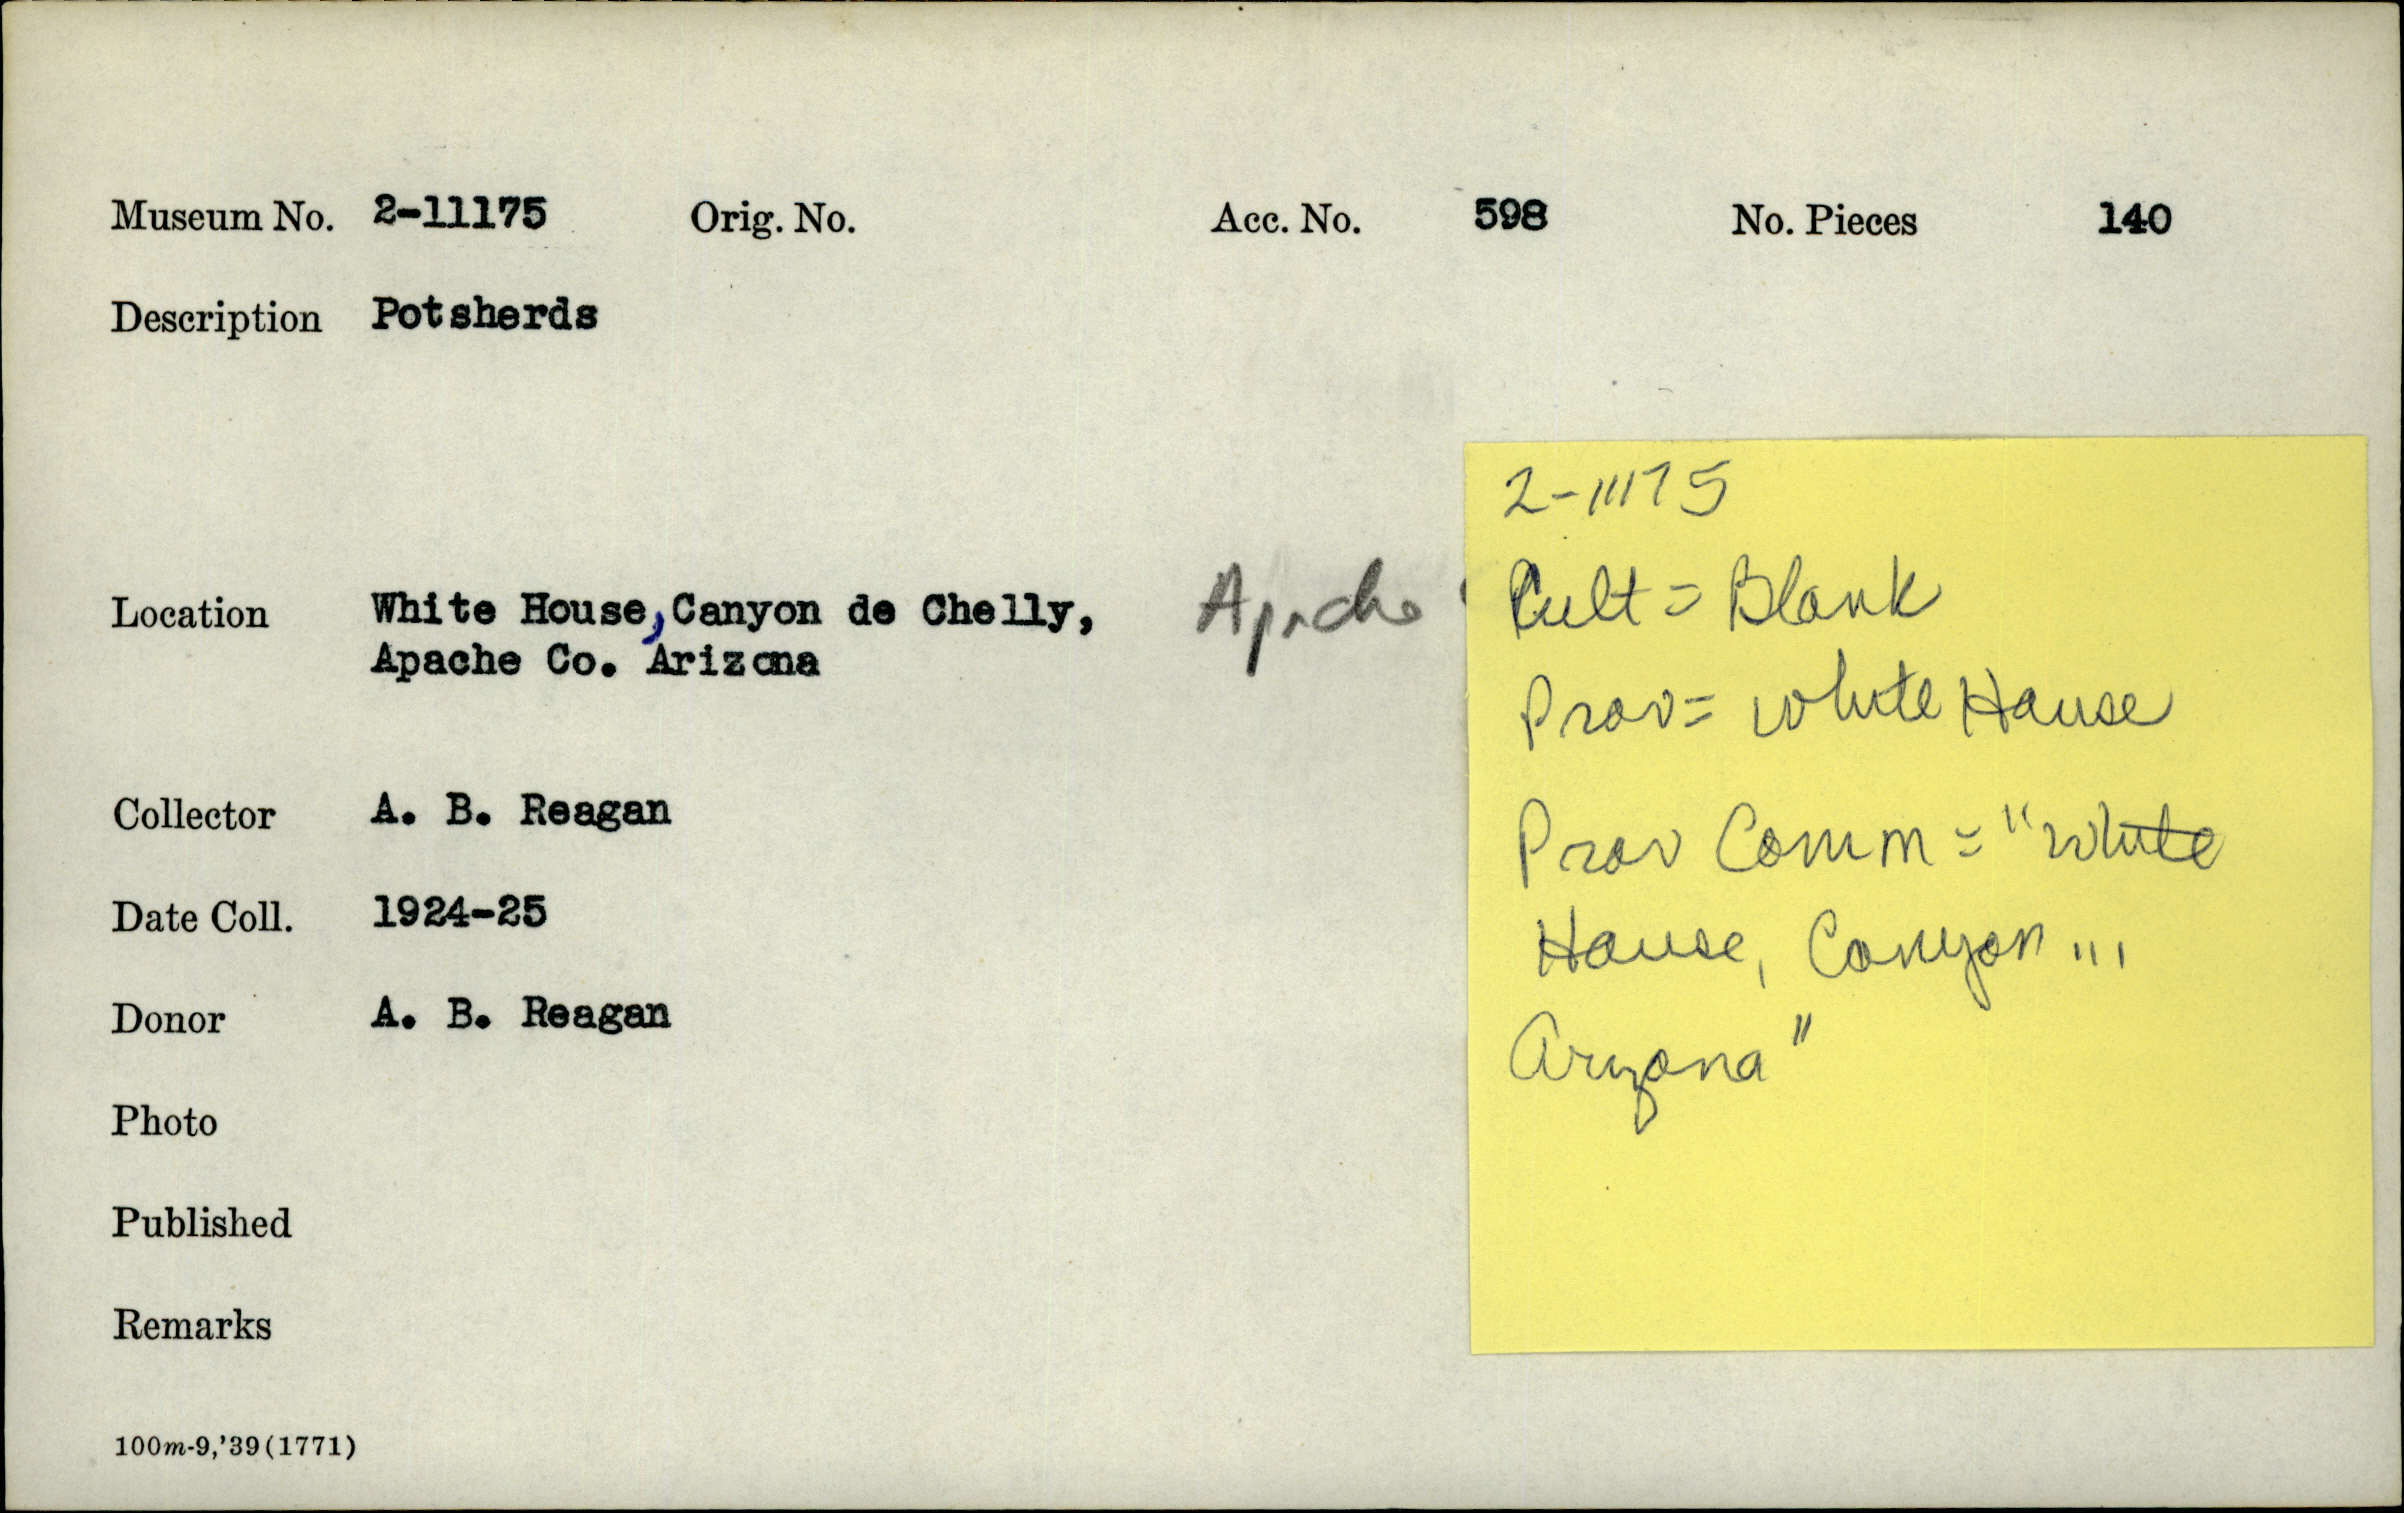 Museum No. 2-11175 Orig. No. Acc. No. 598 No. Pieces 140
Description Potsherds
Location White House, Canyon de Chelly,
Apache Co. Arizona
Apache
Collector A. B. Reagan
Date Coll. 1924-25
Donor A. B. Reagan
Photo
Published
Remarks
100m-9,'39(1771)
2-11175
Cult = Blank
Prov = White House
Prov Comm = "White
House, Canyon ...
Arizona"